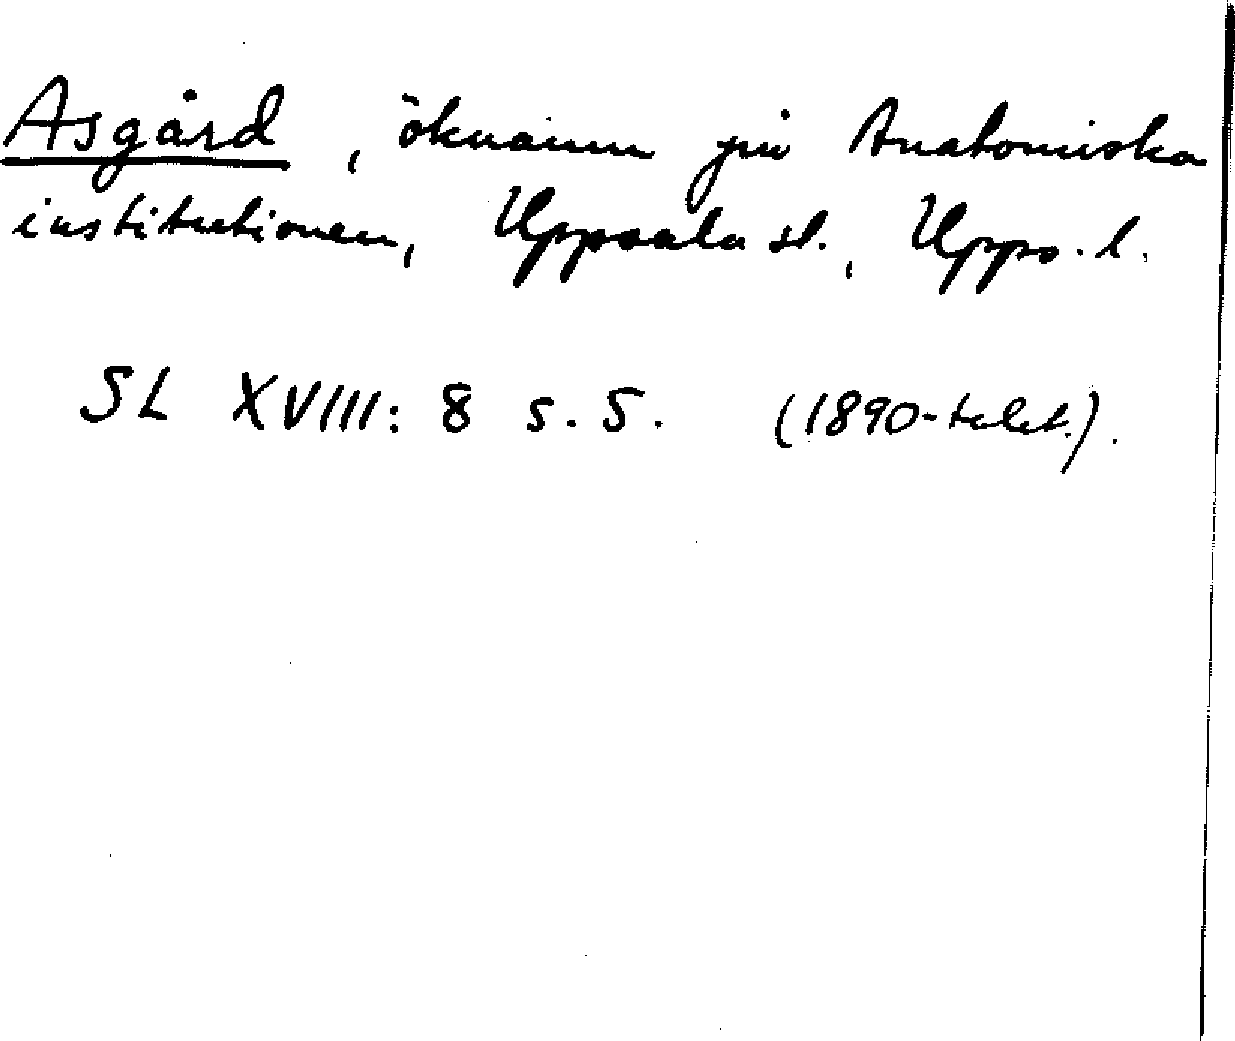 Asgård, öknamn på Anatomiska
institutionen, Uppsala st., Upps. l.
SL XVIII: 8 s. 5. (1890-talet.).